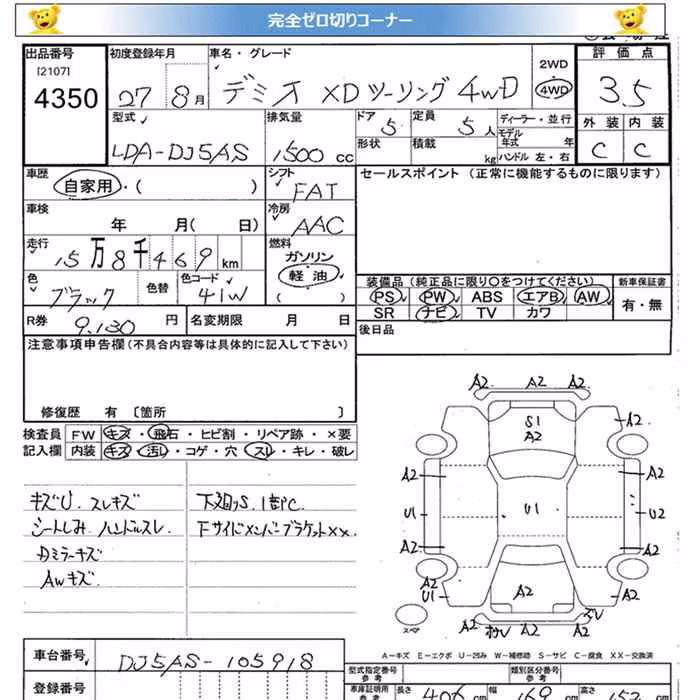 完全ゼロ切りコーナー
出品番号
[2107]
4350
初度登録年月
27 8月
車名・グレード
デミオ XDツーリング 4WD
2WD
4WD
評価点
3.5
外装 内装
C C
型式
LDA-DJ5AS
排気量
1500 cc
ドア 5
定員 5人
形状
積載 kg
ディーラー・並行
モデル
年式 年
ハンドル 左・右
車歴
自家用・( )
シフト
FAT
車検
年 月( 日)
冷房
AAC
走行
15万8千469km
燃料
ガソリン
軽油
( )
色
ブラック
色替
色コード
41W
R券
9,130 円
名変期限 月 日
セールスポイント (正常に機能するものに限ります)
装備品(純正品に限り○をつけてください)
PS PW ABS エアB AW
SR ナビ TV カワ
新車保証書
有・無
後日品
注意事項申告欄(不具合内容等は具体的に記入して下さい)
修復歴 有〔箇所 〕
検査員
記入欄
FW キズ・飛石・ヒビ割・リペア跡・×要
内装 キズ・汚レ・コゲ・穴・スレ・キレ・破レ
キズU. スレキズ
シートしみ ハンドルスレ.
Dミラーキズ
AWキズ
下廻りS. 1部C.
FサイドメンバーブラケットXX.
A2 A2 A2
S1
A2
A2
A2
A2
U1
U1
U2
A2
A2
A2
U1
A2
A2
A2
スペア
A2 A2
A－キズ E－エクボ U－凹み W－補修跡 S－サビ C－腐食 XX－交換済
車台番号
DJ5AS-105918
登録番号
型式指定番号
参考
類別区分番号
参考
車庫証明用
参考
長さ 406 cm
幅 169 cm
高さ 152 cm